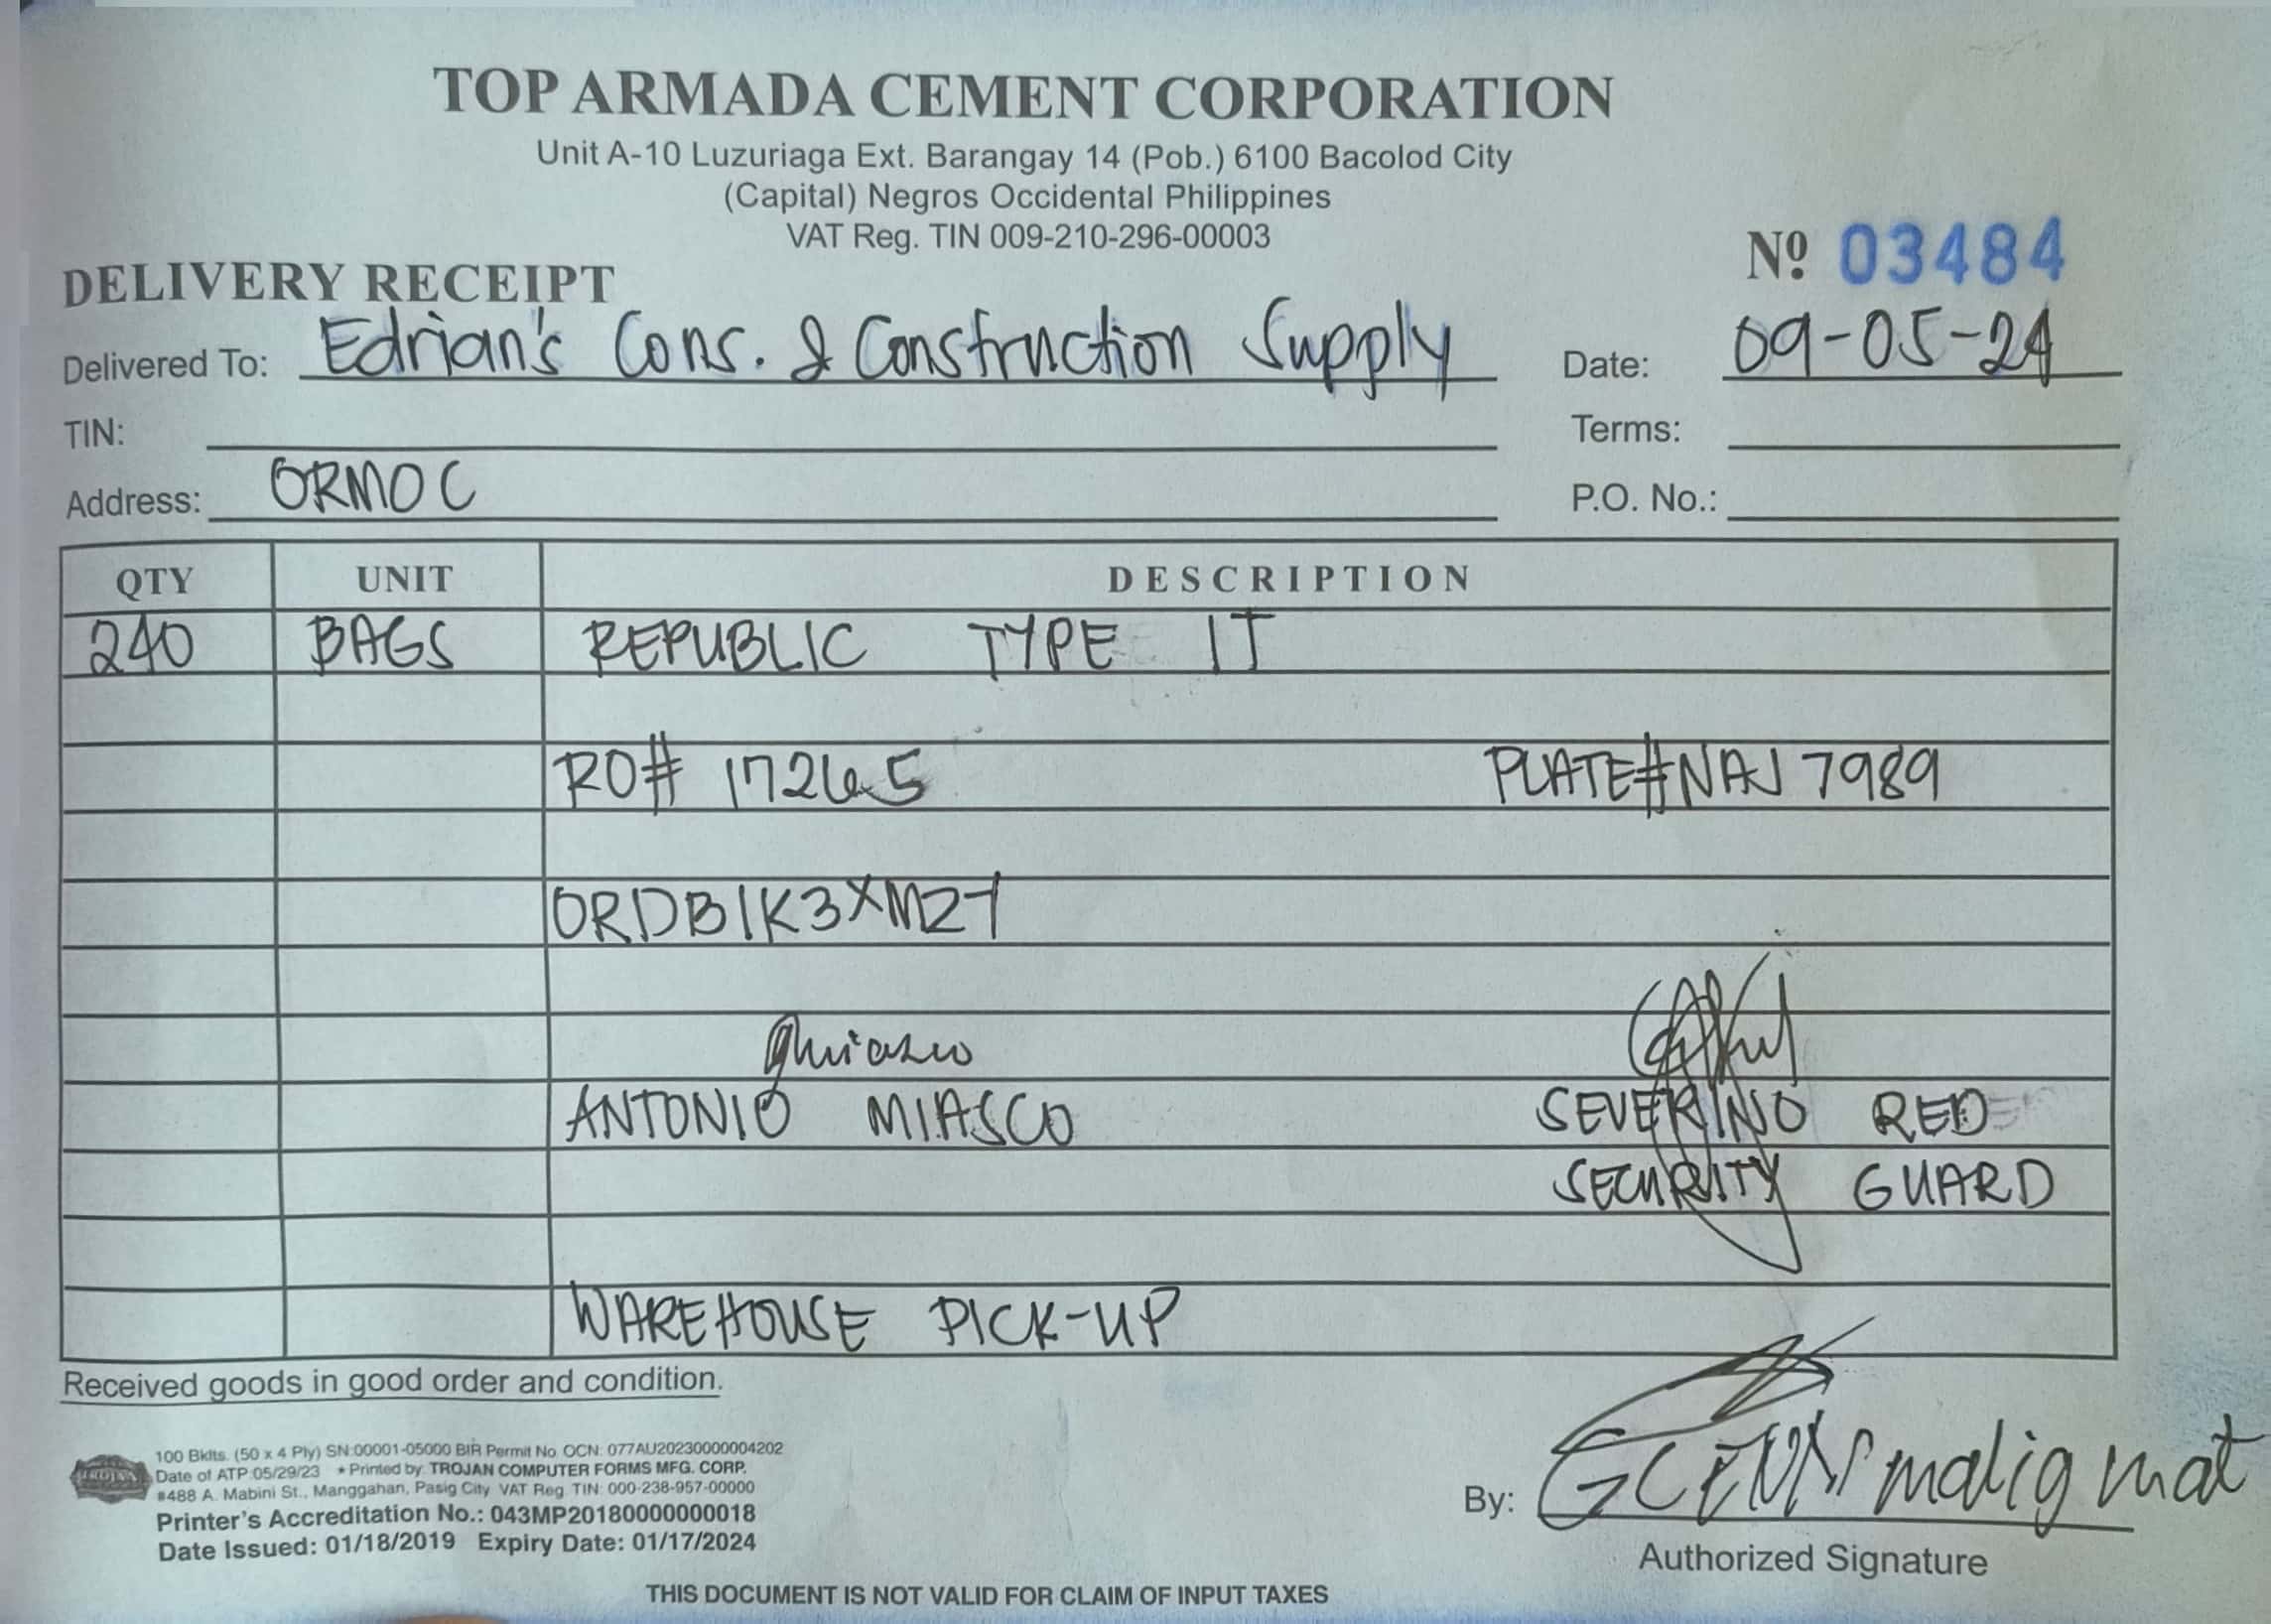 TOP ARMADA CEMENT CORPORATION
Unit A-10 Luzuriaga Ext. Barangay 14 (Pob.) 6100 Bacolod City
(Capital) Negros Occidental Philippines
VAT Reg. TIN 009-210-296-00003
Nº 03484
DELIVERY RECEIPT
Delivered To: Edrian's Cons. & Construction Supply Date: 09-05-24
TIN: Terms:
Address: ORMOC P.O. No.:
QTY UNIT DESCRIPTION
240 BAGS REPUBLIC TYPE IT
RO# 17265 PLATE# NAJ 7989
ORDB1K3XMZ7
ANTONIO MIASCO SEVERINO RED
SECURITY GUARD
WAREHOUSE PICK-UP
Received goods in good order and condition.
100 Bklts. (50 x 4 Ply) SN:00001-05000 BIR Permit No. OCN: 077AU20230000004202
Date of ATP 05/29/23 * Printed by: TROJAN COMPUTER FORMS MFG. CORP.
#488 A. Mabini St., Manggahan, Pasig City VAT Reg. TIN: 000-238-957-00000
Printer's Accreditation No.: 043MP20180000000018
Date Issued: 01/18/2019 Expiry Date: 01/17/2024
TROJAN
By: maligmat
Authorized Signature
THIS DOCUMENT IS NOT VALID FOR CLAIM OF INPUT TAXES